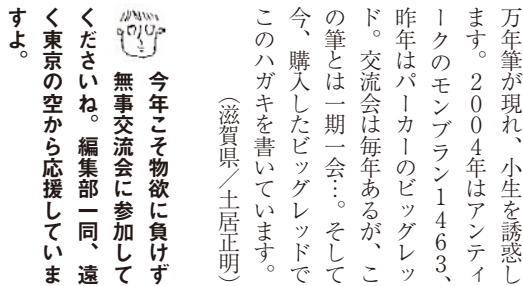 万年筆が現れ、小生を誘惑し
ます。2004年はアンティ
ークのモンブラン1463、
昨年はパーカーのビッグレッ
ド。交流会は毎年あるが、こ
の筆とは一期一会…。そして
今、購入したビッグレッドで
このハガキを書いています。
（滋賀県／土居正明）
今年こそ物欲に負けず
無事交流会に参加して
くださいね。編集部一同、遠
く東京の空から応援していま
すよ。